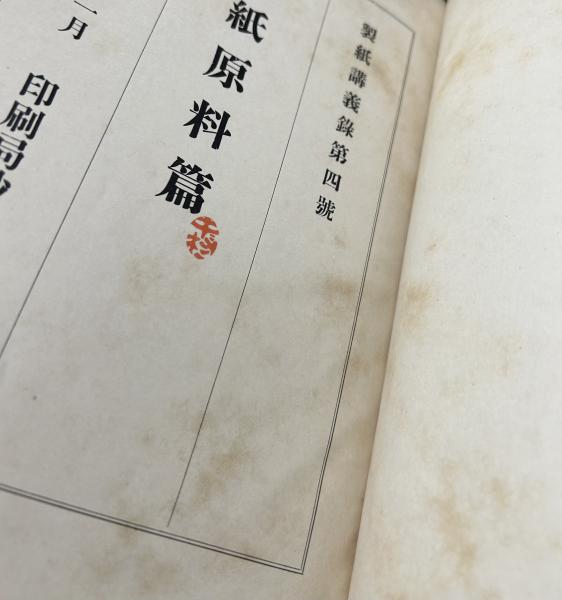 製紙講義錄第四號
紙原料篇
一月
印刷局